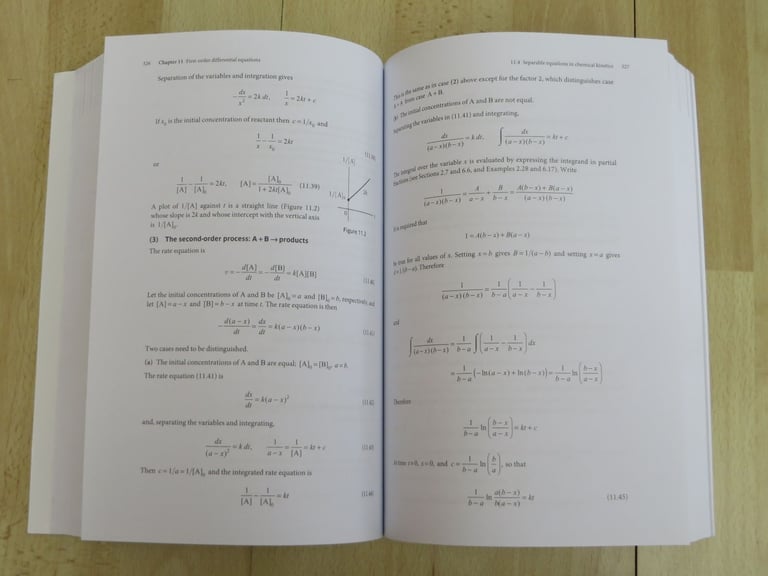 326 Chapter 11 First-order differential equations
Separation of the variables and integration gives
−dx/x² = 2k dt, 1/x = 2kt + c
If x₀ is the initial concentration of reactant then c = 1/x₀ and
1/x − 1/x₀ = 2kt
or
1/[A] − 1/[A]₀ = 2kt, [A] = [A]₀/(1 + 2kt[A]₀) (11.39)
A plot of 1/[A] against t is a straight line (Figure 11.2)
whose slope is 2k and whose intercept with the vertical axis
is 1/[A]₀.
1/[A]
1/[A]₀
2k
0
t
Figure 11.2
(3) The second-order process: A + B → products
The rate equation is
v = −d[A]/dt = −d[B]/dt = k[A][B] (11.40)
Let the initial concentrations of A and B be [A]₀ = a and [B]₀ = b, respectively, and
let [A] = a − x and [B] = b − x at time t. The rate equation is then
−d(a − x)/dt = dx/dt = k(a − x)(b − x) (11.41)
Two cases need to be distinguished.
(a) The initial concentrations of A and B are equal: [A]₀ = [B]₀, a = b.
The rate equation (11.41) is
dx/dt = k(a − x)² (11.42)
and, separating the variables and integrating,
dx/(a − x)² = k dt, 1/(a − x) = 1/[A] = kt + c (11.43)
Then c = 1/a = 1/[A]₀ and the integrated rate equation is
1/[A] − 1/[A]₀ = kt (11.44)
11.4 Separable equations in chemical kinetics 327
This is the same as in case (2) above except for the factor 2, which distinguishes case
A + A from case A + B.
(b) The initial concentrations of A and B are not equal.
Separating the variables in (11.41) and integrating,
dx/((a − x)(b − x)) = k dt, ∫ dx/((a − x)(b − x)) = kt + c
The integral over the variable x is evaluated by expressing the integrand in partial
fractions (see Sections 2.7 and 6.6, and Examples 2.28 and 6.17). Write
1/((a − x)(b − x)) = A/(a − x) + B/(b − x) = (A(b − x) + B(a − x))/((a − x)(b − x))
It is required that
1 = A(b − x) + B(a − x)
be true for all values of x. Setting x = b gives B = 1/(a − b) and setting x = a gives
A = 1/(b − a). Therefore
1/((a − x)(b − x)) = 1/(b − a) (1/(a − x) − 1/(b − x))
and
∫ dx/((a − x)(b − x)) = 1/(b − a) ∫ (1/(a − x) − 1/(b − x)) dx
= 1/(b − a) (−ln(a − x) + ln(b − x)) = 1/(b − a) ln ((b − x)/(a − x))
Therefore
1/(b − a) ln ((b − x)/(a − x)) = kt + c
At time t = 0, x = 0, and c = 1/(b − a) ln (b/a), so that
1/(b − a) ln a(b − x)/b(a − x) = kt (11.45)